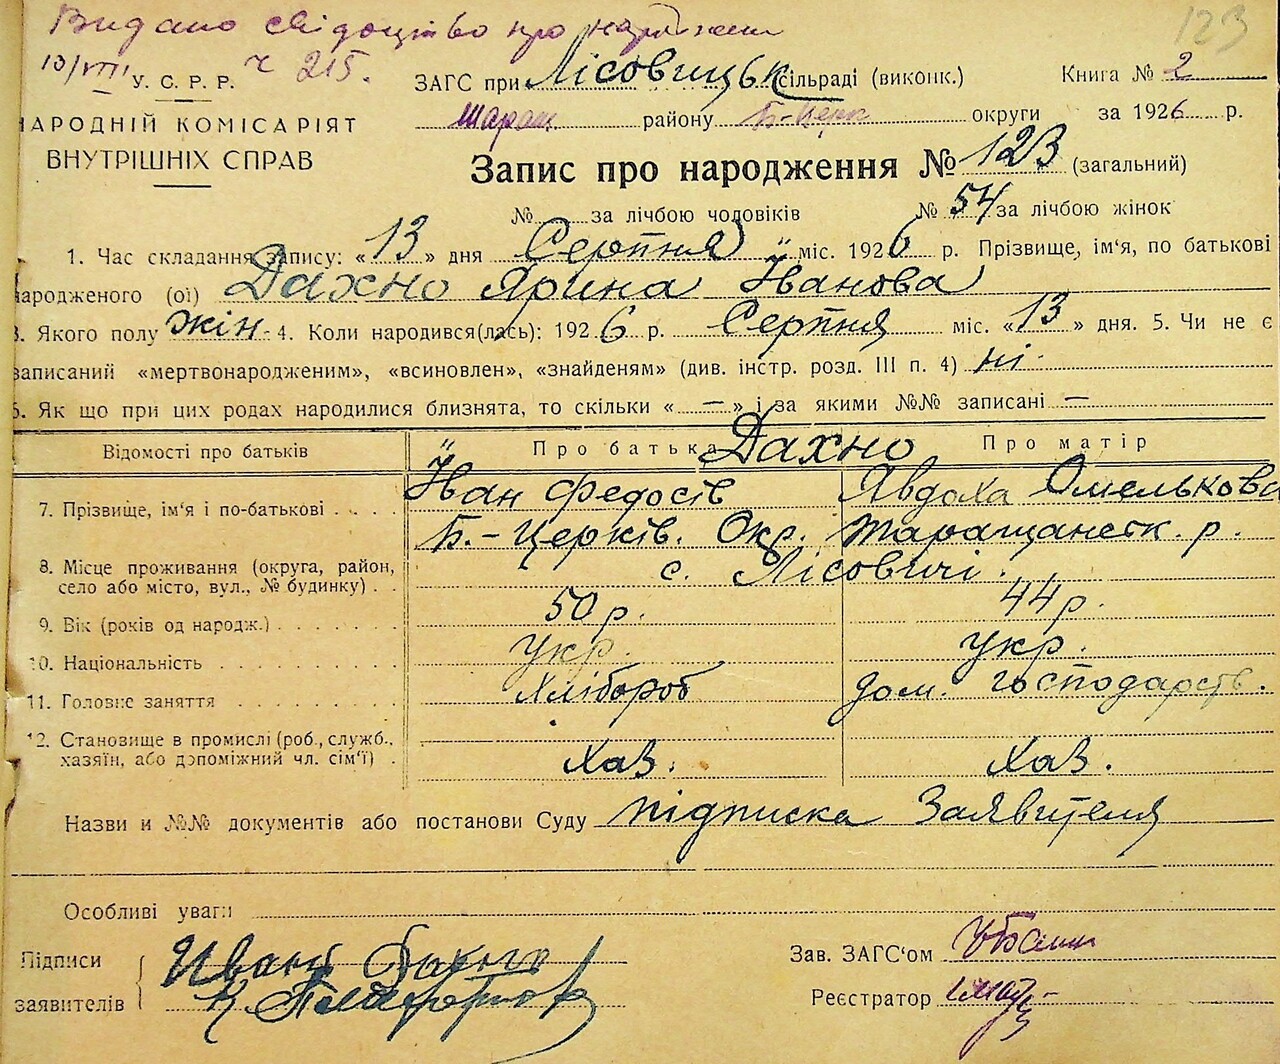 Видано свідоцтво про народження
10/VIII ч 215.
123
У. С. Р. Р.
НАРОДНІЙ КОМІСАРІЯТ
ВНУТРІШНІХ СПРАВ
ЗАГС при Лісовицьк сільраді (виконк.) Книга № 2
Таращ району Б-Церк округи за 1926 р.
Запис про народження № 123 (загальний)
№ за лічбою чоловіків № 54 за лічбою жінок
1. Час складання запису: «13» дня Серпня міс. 1926 р. Прізвище, ім'я, по батькові
народженого (ої) Дахно Ярина Іванова
3. Якого полу жін. 4. Коли народився(лась): 1926 р. Серпня міс. «13» дня. 5. Чи не є
записаний «мертвонародженим», «всиновлен», «знайденям» (див. інстр. розд. III п. 4) ні.
6. Як що при цих родах народилися близнята, то скільки « — » і за якими №№ записані —
Відомості про батьків Про батька Про матір
Дахно
7. Прізвище, ім'я і по-батькові Іван Федосів Явдоха Омелькова
8. Місце проживання (округа, район, село або місто, вул., № будинку) Б.-Церків. Окр. Таращанськ. р.
с. Лісовичі.
9. Вік (років од народж.) 50 р. 44 р.
10. Національність Укр. Укр.
11. Головне заняття Хлібороб дом. господарств.
12. Становище в промислі (роб., служб., хазяїн, або допоміжний чл. сім'ї) Хаз. Хаз.
Назви и №№ документів або постанови Суду підписка Заявителя
Особливі уваги
Підписи
заявителів
Иван Дахно
Зав. ЗАГС'ом
Реєстратор